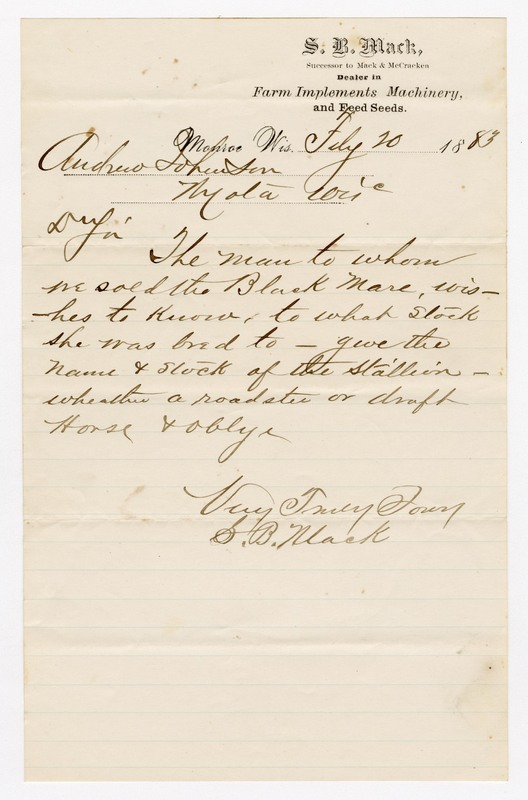 S. B. Mack,
Successor to Mack & McCracken
Dealer in
Farm Implements Machinery,
and Feed Seeds.
Monroe Wis. Feby 20 1883
Andrew Johnson
Wyota Wis
Dr Sir
The man to whom
we sold the Black Mare, wis-
-hes to know, to what Stock
she was bred to - give the
name & Stock of the Stallion -
wheather a roadster or draft
Horse & oblige
Very Truly Yours
S. B. Mack